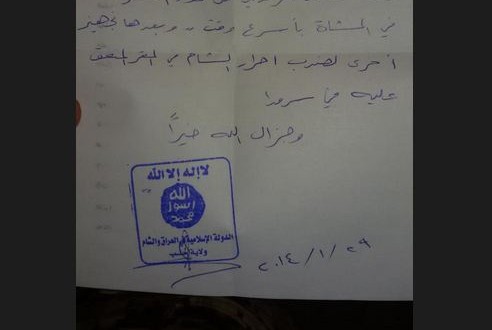 في المشاة بأسرع وقت .. وبعدها تجهيز
أخرى لضرب احرار الشام في المقر المتفق
عليه في سرمدا
وجزاك الله خيراً
لا إله إلا الله
الله
رسول
محمد
الدولة الإسلامية في العراق والشام
ولاية حلب
٢٠١٤/١/٢٩